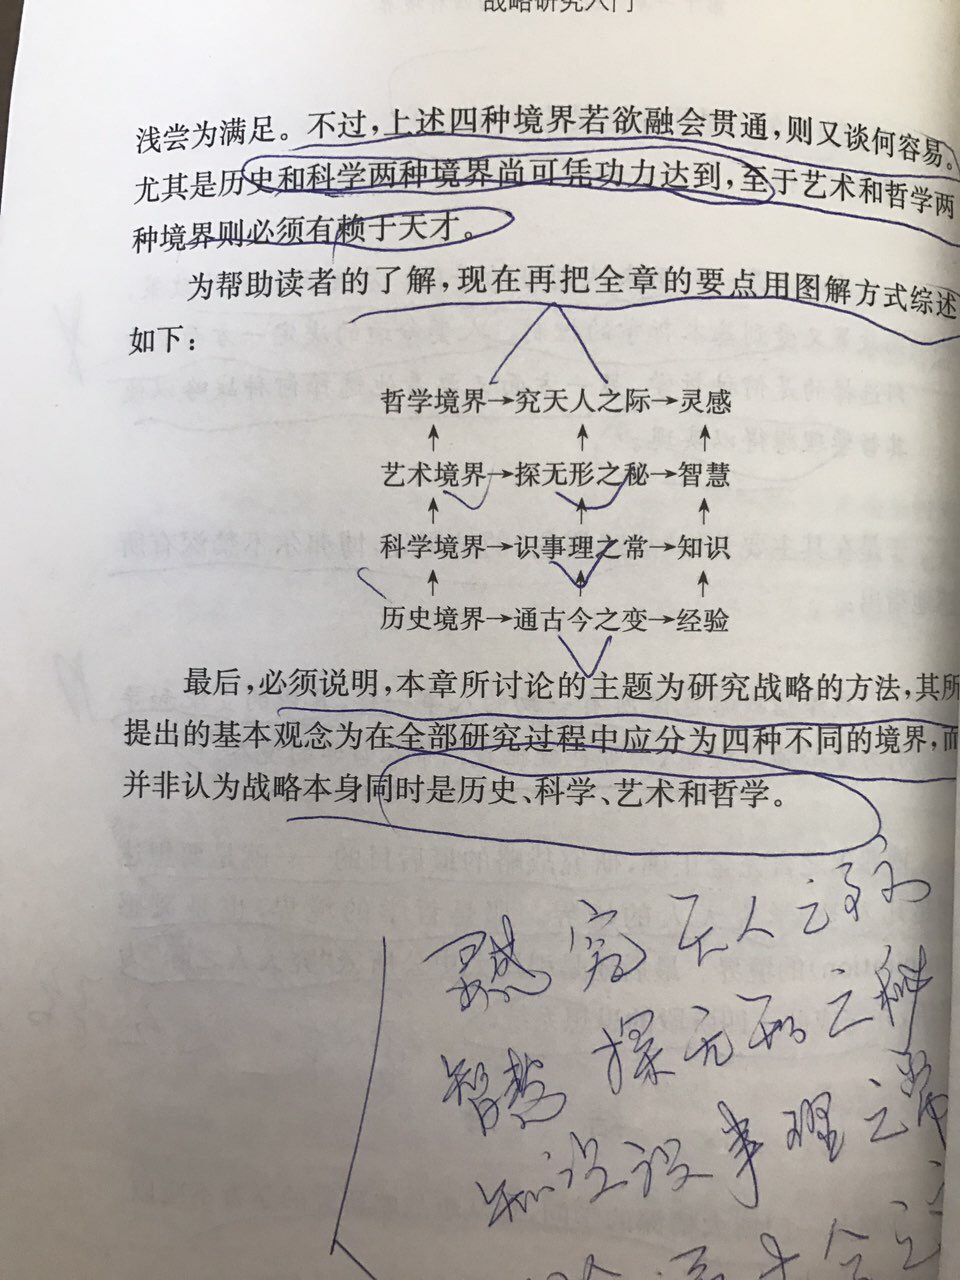 战略研究入门
浅尝为满足。不过，上述四种境界若欲融会贯通，则又谈何容易。
尤其是历史和科学两种境界尚可凭功力达到，至于艺术和哲学两
种境界则必须有赖于天才。
为帮助读者的了解，现在再把全章的要点用图解方式综述
如下：
哲学境界→究天人之际→灵感
↑ ↑ ↑
艺术境界→探无形之秘→智慧
↑ ↑ ↑
科学境界→识事理之常→知识
↑ ↑ ↑
历史境界→通古今之变→经验
最后，必须说明，本章所讨论的主题为研究战略的方法，其所
提出的基本观念为在全部研究过程中应分为四种不同的境界，而
并非认为战略本身同时是历史、科学、艺术和哲学。
灵感 究天人之
智慧 探无形之秘
知识 识事理之常
古今之